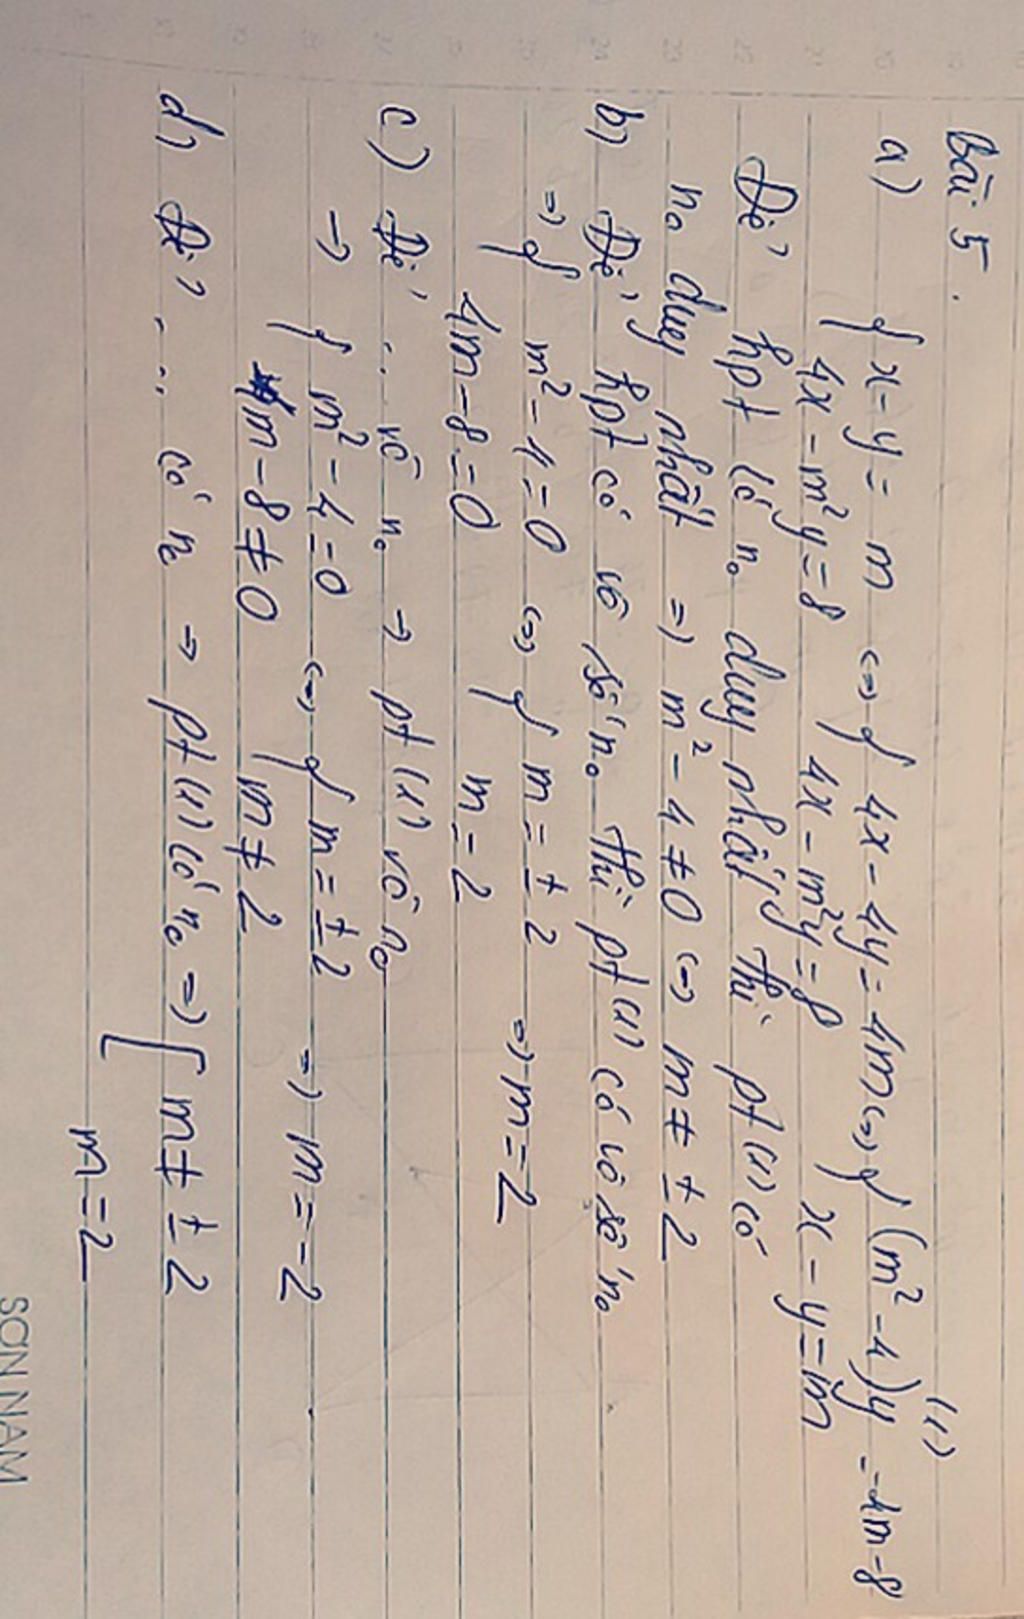 Bài 5.
a) { x - y = m <=> { 4x - 4y = 4m <=> { (m² - 4)y = 4m - 8 (1)
4x - m²y = 8 4x - m²y = 8 x - y = m
Để hpt có n₀ duy nhất thì pt (1) có
n₀ duy nhất => m² - 4 ≠ 0 <=> m ≠ ± 2
b) Để hpt có vô số n₀ thì pt (1) có vô số n₀
=> { m² - 4 = 0 <=> { m = ± 2 => m = 2
4m - 8 = 0 m = 2
c) Để ... vô n₀ → pt (1) vô n₀
→ { m² - 4 = 0 <=> { m = ± 2 => m = -2
4m - 8 ≠ 0 m ≠ 2
d) Để ... có n₀ → pt (1) có n₀ => [ m ≠ ± 2
m = 2
SƠN NAM